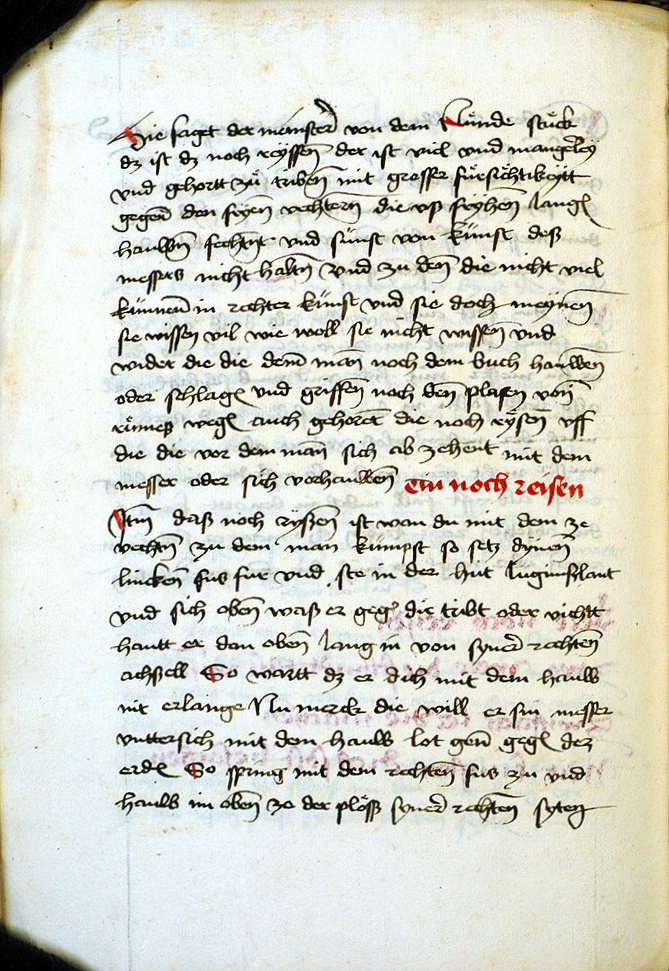 Hie saget der maister von dem Nünde stück
dz ist dz noch reyssen der ist viel vnd mangerley
vnd gehortt zü triben mit grosser fürsichtikeytt
gegen den fryen vechtern die vß fryhen langen
hauwen fechtent vnd sünst von künst deß
messers nicht halten Vnd zu den die nicht viel
künnen in rechter künst vnd sie doch meynen
sie wissen vil wie woll sie nicht wissen vnd
wider die die dem man noch dem buch hauwen
oder schlagen vnd griffen noch den plasen von
rümes wegen auch gehoret die noch rysen vff
die die vor dem man sich ab zehent mit dem
messer oder sich vorhauwen ein noch reisen
Itm daß noch ryssen ist wan du mit dem ze
vechten zu dem man kümpst so setz dynen
lincken fus fur vnd ste in der hüt Luginsland
vnd sich oben waß er gegen dir tribt oder vichtt
hautt er dan oben lang in von syner rechten
achsell So wartt dz er dich mit dem hauw
nit erlange Nu merck die will er sin messer
vnttersich mit dem hauw lot gen gegen der
erden So spring mit dem rechten fus zu vnd
hauw im oben zo der plöß syner rechten syten